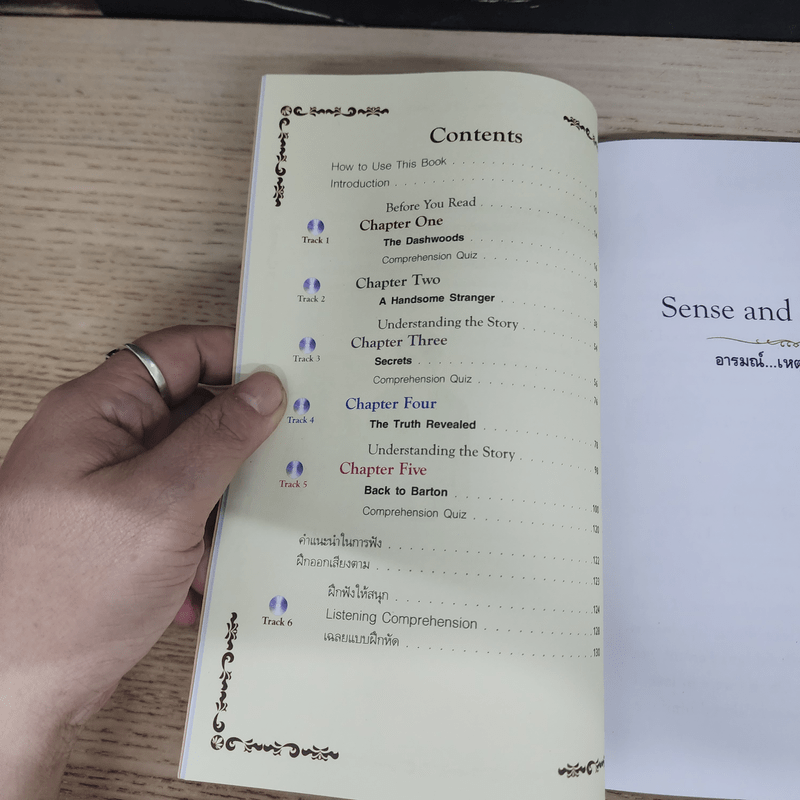 Contents
How to Use This Book
Introduction
Before You Read
Track 1
Chapter One
The Dashwoods
Comprehension Quiz
Track 2
Chapter Two
A Handsome Stranger
Understanding the Story
Track 3
Chapter Three
Secrets
Comprehension Quiz
Track 4
Chapter Four
The Truth Revealed
Understanding the Story
Track 5
Chapter Five
Back to Barton
Comprehension Quiz 120
คำแนะนำในการฟัง 122
ฝึกออกเสียงตาม 123
ฝึกฟังให้สนุก 124
Track 6
Listening Comprehension 128
เฉลยแบบฝึกหัด 130
Sense and
อารมณ์...เหต